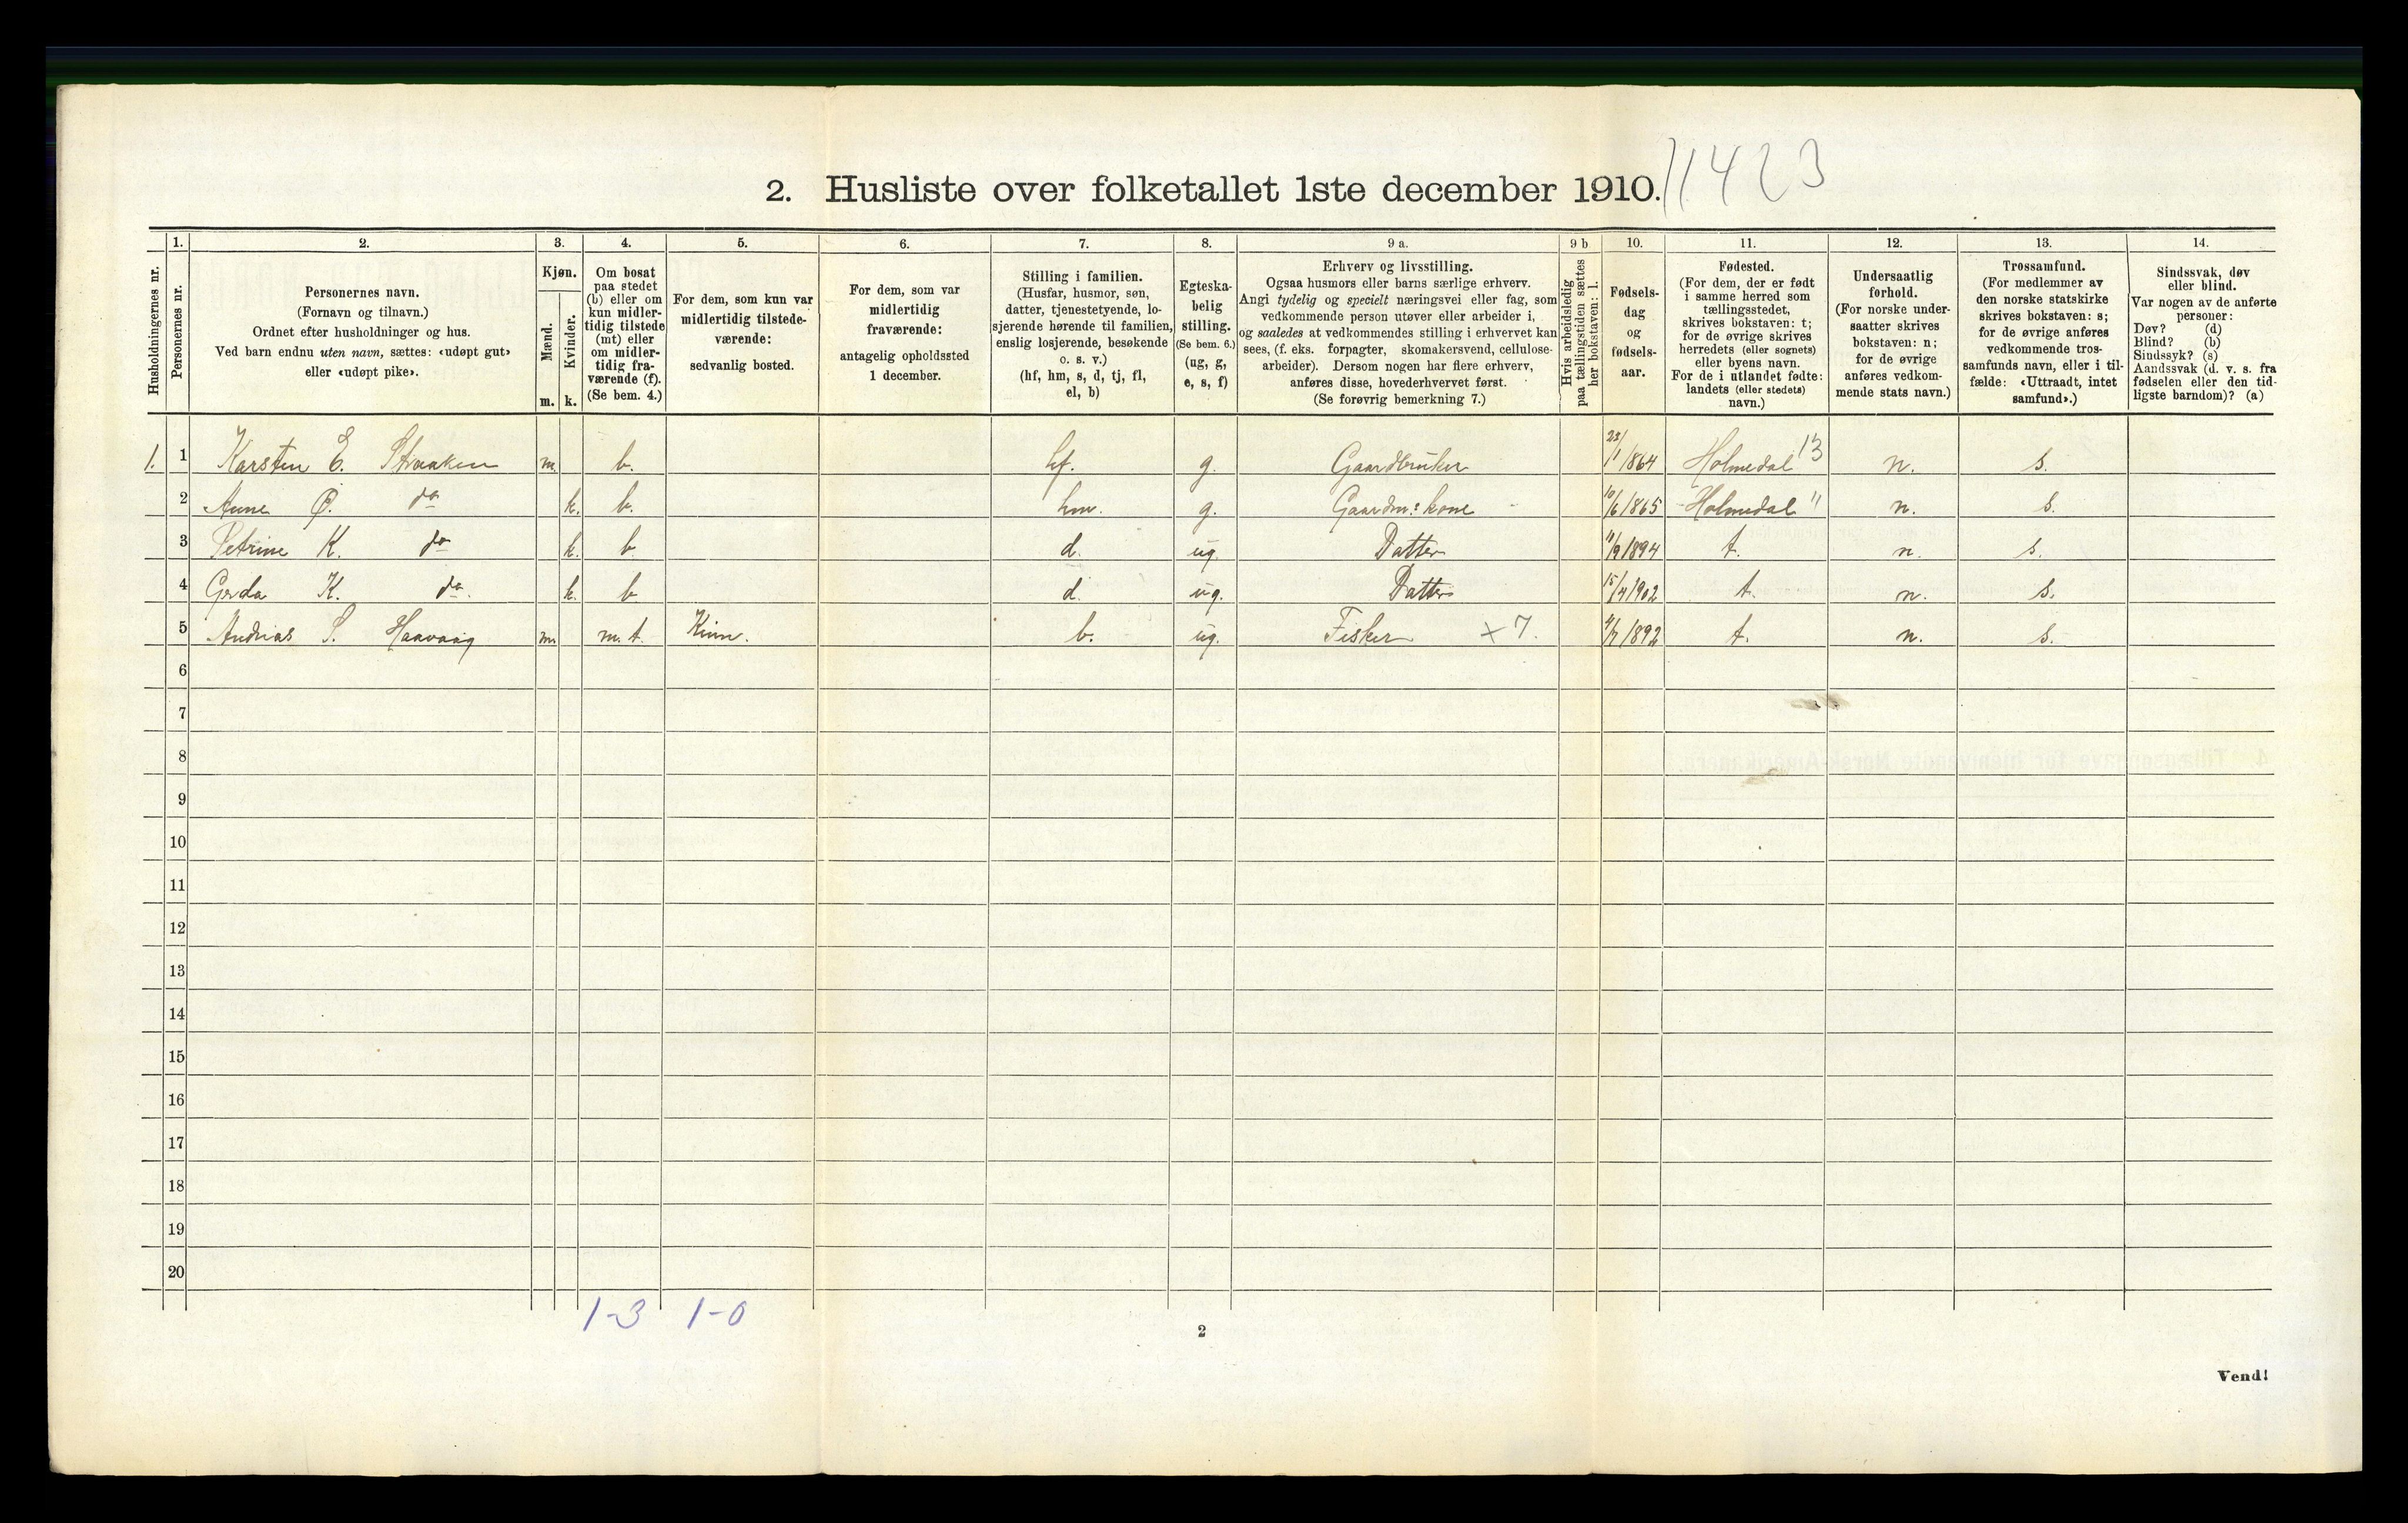 2. Husliste over folketallet 1ste december 1910. 11423
Husholdningernes nr.
1.
Personernes nr.
2.
Personernes navn.
(Fornavn og tilnavn.)
Ordnet efter husholdninger og hus.
Ved barn endnu uten navn, sættes: «udøpt gut»
eller «udøpt pike».
3.
Kjøn.
Mænd.
m.
Kvinder.
k.
4.
Om bosat
paa stedet
(b) eller om
kun midler-
tidig tilstede
(mt) eller
om midler-
tidig fra-
værende (f).
(Se bem. 4.)
5.
For dem, som kun var
midlertidig tilstede-
værende:
sedvanlig bosted.
6.
For dem, som var
midlertidig
fraværende:
antagelig opholdssted
1 december.
7.
Stilling i familien.
(Husfar, husmor, søn,
datter, tjenestetyende, lo-
sjerende hørende til familien,
enslig losjerende, besøkende
o. s. v.)
(hf, hm, s, d, tj, fl,
el, b)
8.
Egteska-
belig
stilling.
(Se bem. 6.)
(ug, g,
e, s, f)
9 a.
Erhverv og livsstilling.
Ogsaa husmors eller barns særlige erhverv.
Angi tydelig og specielt næringsvei eller fag, som
vedkommende person utøver eller arbeider i,
og saaledes at vedkommendes stilling i erhvervet kan
sees, (f. eks. forpagter, skomakersvend, cellulose-
arbeider). Dersom nogen har flere erhverv,
anføres disse, hovederhvervet først.
(Se forøvrig bemerkning 7.)
9 b
Hvis arbeidsledig
paa tællingstiden sættes
her bokstaven: l.
10.
Fødsels-
dag
og
fødsels-
aar.
11.
Fødested.
(For dem, der er født
i samme herred som
tællingsstedet,
skrives bokstaven: t;
for de øvrige skrives
herredets (eller sognets)
eller byens navn.
For de i utlandet fødte:
landets (eller stedets)
navn.)
12.
Undersaatlig
forhold.
(For norske under-
saatter skrives
bokstaven: n;
for de øvrige
anføres vedkom-
mende stats navn.)
13.
Trossamfund.
(For medlemmer av
den norske statskirke
skrives bokstaven: s;
for de øvrige anføres
vedkommende tros-
samfunds navn, eller i til-
fælde: «Uttraadt, intet
samfund».)
14.
Sindssvak, døv
eller blind.
Var nogen av de anførte
personer:
Døv? (d)
Blind? (b)
Sindssyk? (s)
Aandssvak (d. v. s. fra
fødselen eller den tid-
ligste barndom)? (a)
1. 1 Karsten E. Straaken m. b. hf. g. Gaardbruker 23/1 1864 Holmedal 13 n. s.
2 Anne Ø. do k. b. hm. g. Gaardm: kone 10/6 1865 Holmedal " n. s.
3 Petrine K. do k. b. d. ug. Datter 11/9 1894 t. n. s.
4 Gerda K. do. k. b. d. ug. Datter 15/4 1902 t. n. s.
5 Andrias S. Haavaag m. m. t. Kinn. b. ug. Fisker x 7. 4/7 1892 t. n. s.
6
7
8
9
10
11
12
13
14
15
16
17
18
19
20
1-3 1-0
2
Vend!